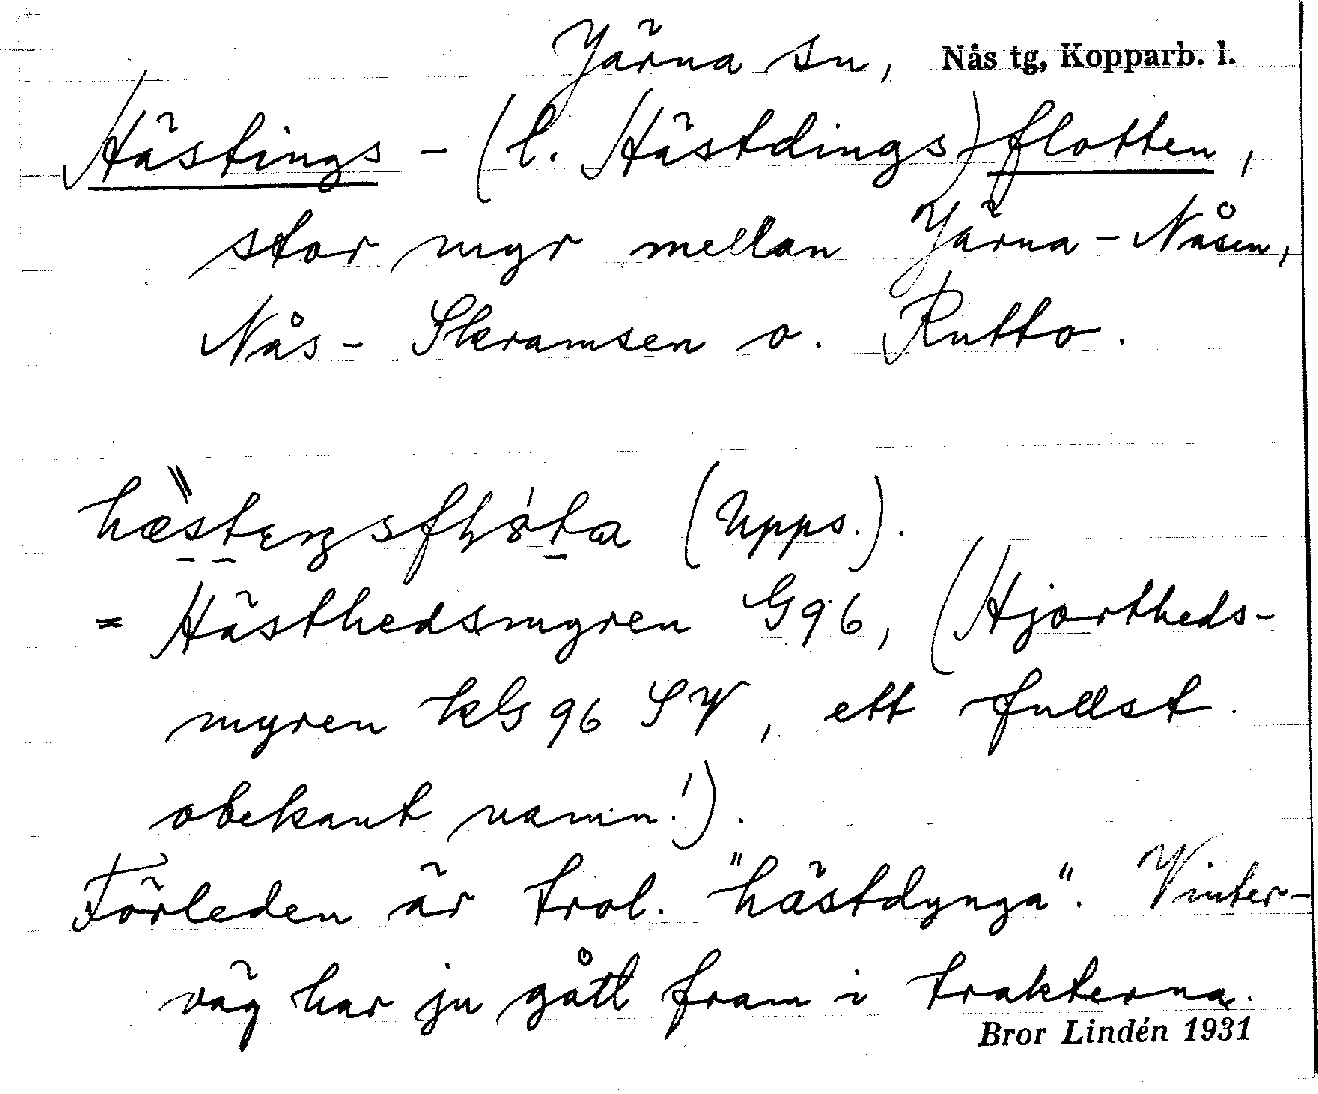 Järna sn, Nås tg, Kopparb. l.
Hästings - (l. Hästdings) flotten,
stor myr mellan Järna-Nåsen,
Nås-Skramsen o. Rutto.
(Upps.).
= Hästhedsmyren G96, (Hjortheds-
myren kG 96 SV, ett fullst.
obekant namn!).
Förleden är trol. "hästdynga". Vinter-
väg har ju gått fram i trakterna.
Bror Lindén 1931